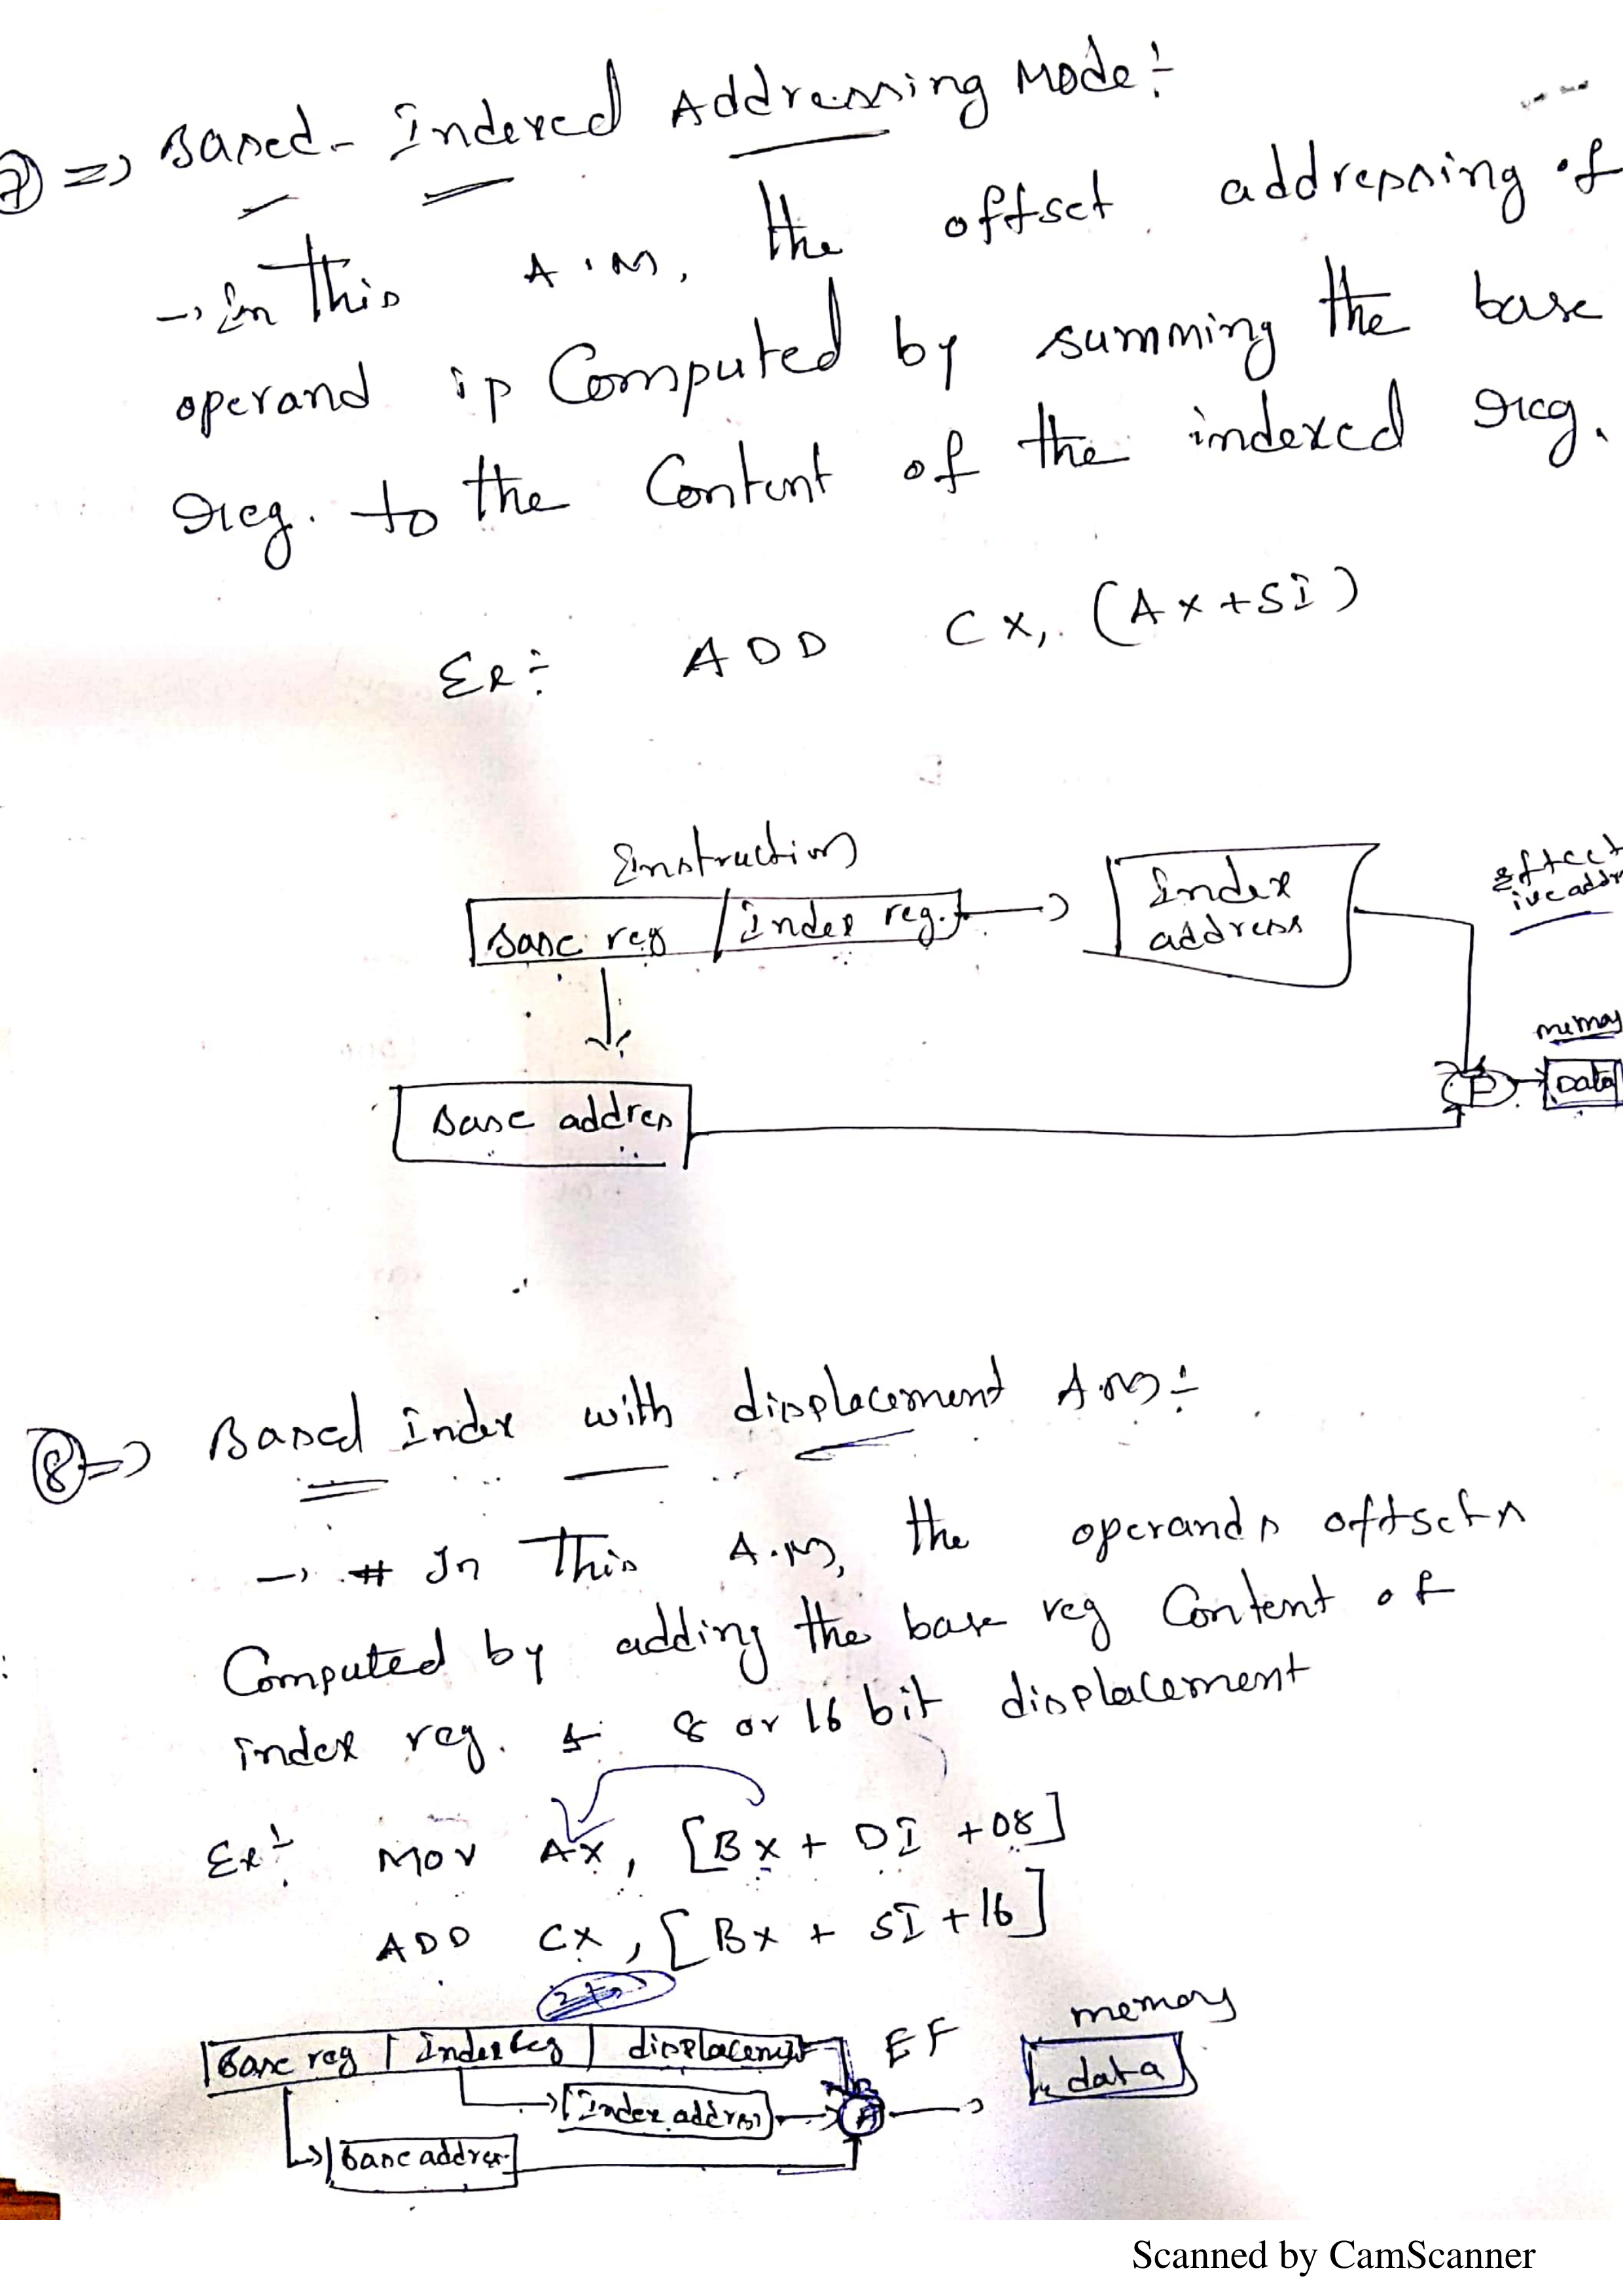 7 => Based - Indexed Addressing Mode :-
→ In this A.M, the offset addressing of
operand is Computed by summing the base
reg. to the Content of the indexed reg.
Ex :- ADD CX, (AX+SI)
Instruction
Base reg / Index reg.
Index
address
effect
ive addr
memory
Data
Base address
8 => Based Index with displacement A.M :-
→ # In This A.M, the operands offsets
Computed by adding the base reg Content of
index reg. & 8 or 16 bit displacement
Ex :- MOV AX, [BX + DI +08]
ADD CX, [BX + SI +16]
memory
Base reg | Index reg | displacement EF
data
Index address
base address
Scanned by CamScanner